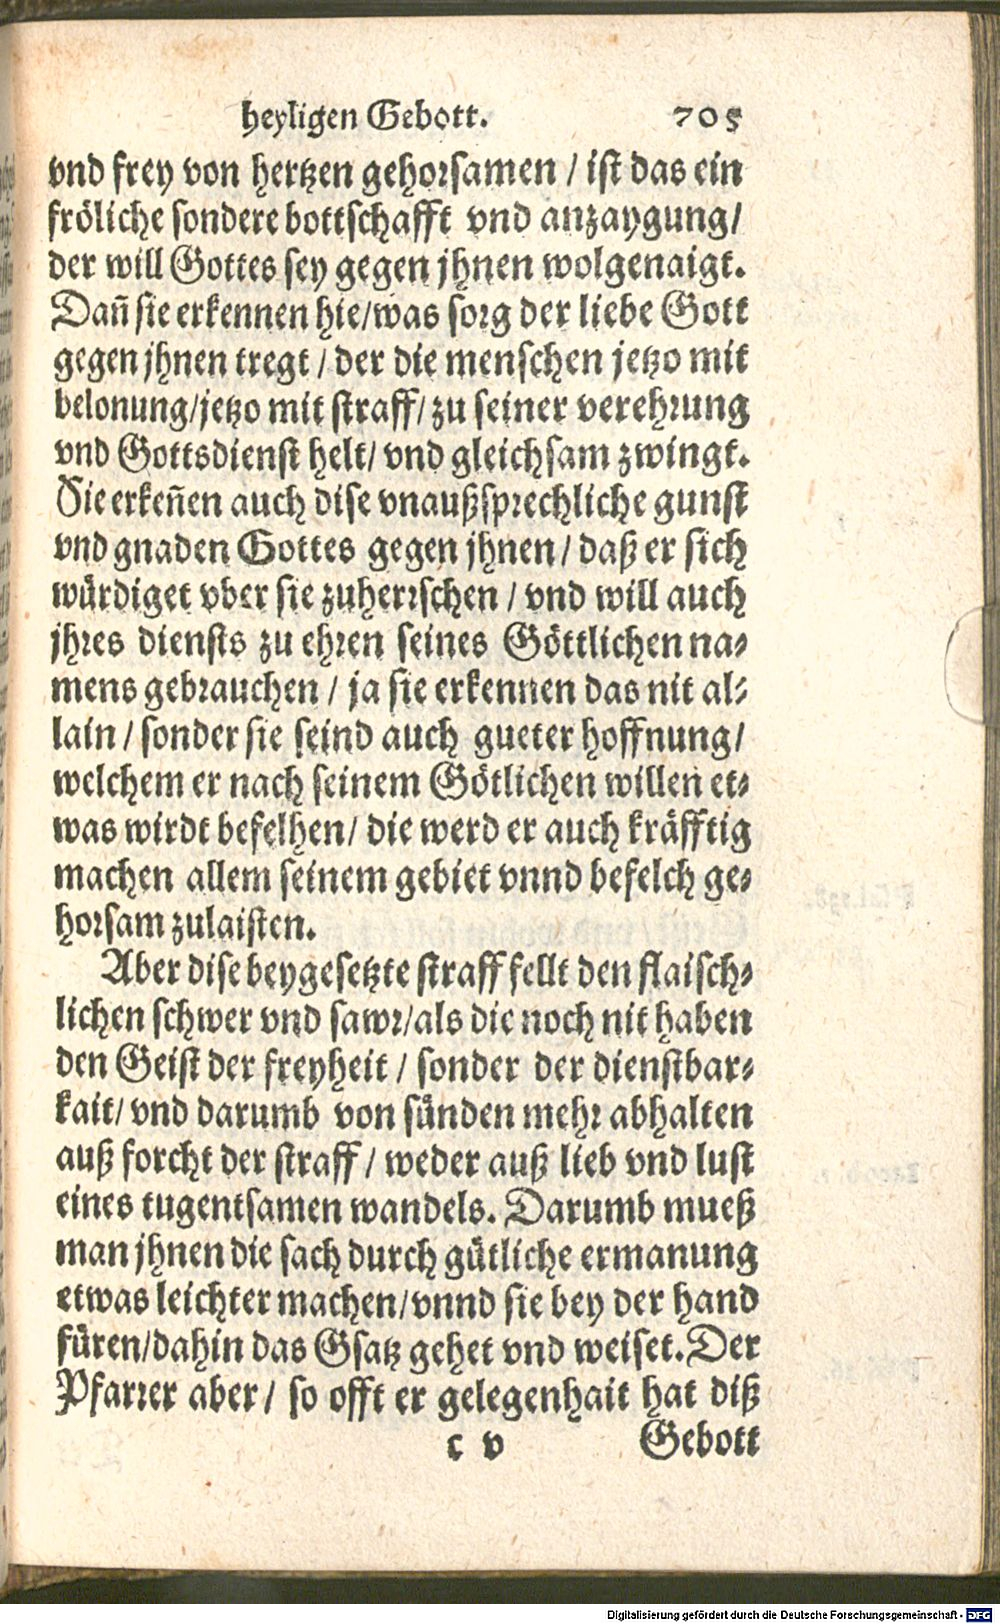 heyligen Gebott. 705
vnd frey von hertzen gehorsamen / ist das ein
fröliche sondere bottschafft vnd anzaygung/
der will Gottes sey gegen jhnen wolgenaigt.
Dañ sie erkennen hie/was sorg der liebe Gott
gegen jhnen tregt / der die menschen jetzo mit
belonung/jetzo mit straff/ zu seiner verehrung
vnd Gottsdienst helt/ vnd gleichsam zwingt.
Sie erkeñen auch dise vnaußsprechliche gunst
vnd gnaden Gottes gegen jhnen / daß er sich
würdiget vber sie zuherrschen / vnd will auch
jhres diensts zu ehren seines Göttlichen na-
mens gebrauchen / ja sie erkennen das nit al-
lain / sonder sie seind auch gueter hoffnung/
welchem er nach seinem Götlichen willen et-
was wirdt befelhen/ die werd er auch kräfftig
machen allem seinem gebiet vnnd befelch ge-
horsam zulaisten.
Aber dise beygesetzte straff fellt den flaisch-
lichen schwer vnd sawr/als die noch nit haben
den Geist der freyheit / sonder der dienstbar-
kait/ vnd darumb von sünden mehr abhalten
auß forcht der straff / weder auß lieb vnd lust
eines tugentsamen wandels. Darumb mueß
man jhnen die sach durch gütliche ermanung
etwas leichter machen/vnnd sie bey der hand
füren/dahin das Gsatz gehet vnd weiset. Der
Pfarrer aber / so offt er gelegenhait hat diß
c v Gebott
Digitalisierung gefördert durch die Deutsche Forschungsgemeinschaft - DFG